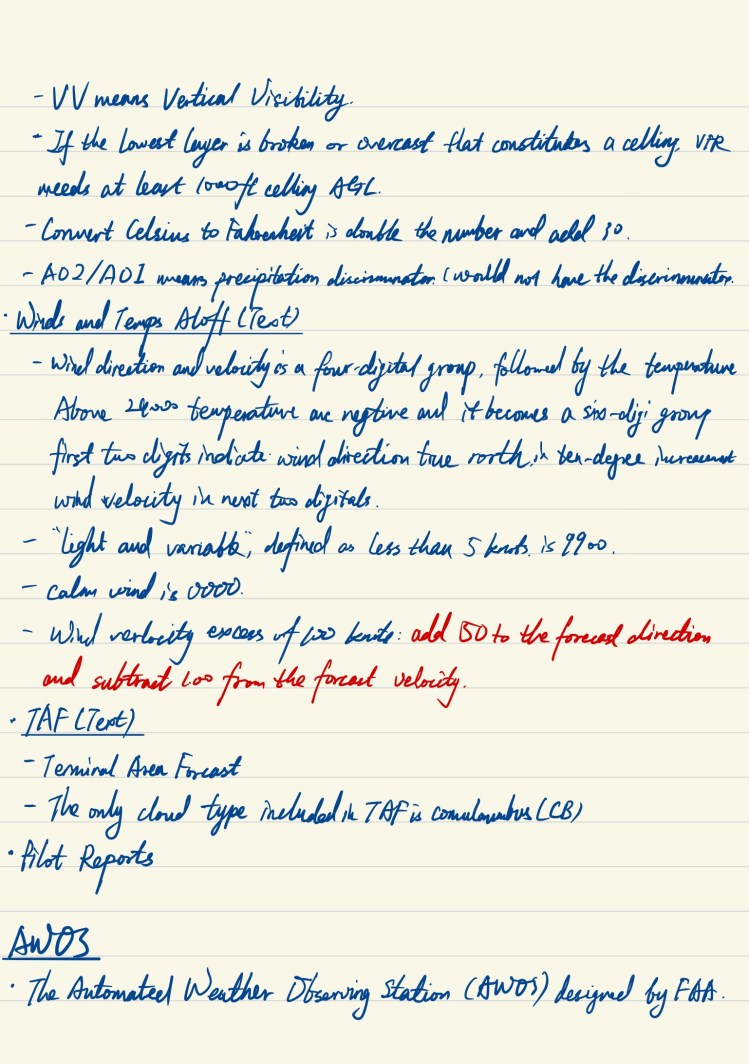 - VV means Vertical Visibility.
- If the lowest layer is broken or overcast that constitutes a celling. VFR
needs at least 1000ft celling AGL.
- Convert Celsius to Fahrenheit is double the number and add 30.
- AO2/AO1 means precipitation discriminator. 1 would not have the discriminator.
· Winds and Temps Aloft (Text)
- Wind direction and velocity is a four-digital group, followed by the temperature
Above 24000 temperature are negtive and it becomes a six-digi group
first two digits indicate wind direction true north, in ten-degree increament
wind velocity in next two digitals.
- "light and variable", defined as less than 5 knots. is 9900.
- calm wind is 0000.
- Wind verlocity excess of 100 knots: add 50 to the forecast direction
and subtract 100 from the forcast velocity.
· TAF (Text)
- Terminal Area Forcast
- The only cloud type included in TAF is (CB)
· Pilot Reports
AWOS
· The Automated Weather Observing Station (AWOS) designed by FAA.